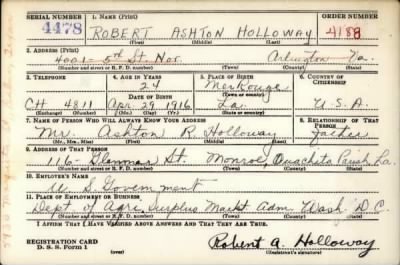 SERIAL NUMBER 1. NAME (Print) ORDER NUMBER
4478 ROBERT ASHTON HOLLOWAY 4188
(First) (Middle) (Last)
2. ADDRESS (Print)
4001- 5th St. Nor. Arlington Va.
(Number and street or R. F. D. number) (Town) (County) (State)
3. TELEPHONE 4. AGE IN YEARS 5. PLACE OF BIRTH 6. COUNTRY OF CITIZENSHIP
24 Mer Rouge
DATE OF BIRTH (Town or county)
CH 4811 Apr. 29 1916 La. U.S.A.
(Exchange) (Number) (Mo.) (Day) (Yr.) (State or country)
7. NAME OF PERSON WHO WILL ALWAYS KNOW YOUR ADDRESS 8. RELATIONSHIP OF THAT PERSON
Mr. Ashton R. Holloway Father
(Mr., Mrs., Miss) (First) (Middle) (Last)
9. ADDRESS OF THAT PERSON
116- St. Monroe, Ouachita Parish La.
(Number and street or R. F. D. number) (Town) (County) (State)
10. EMPLOYER'S NAME
U. S. Government
11. PLACE OF EMPLOYMENT OR BUSINESS
Dept of Agri, Surplus Markt Adm Wash D.C.
(Number and street or R. F. D. number) (Town) (County) (State)
I AFFIRM THAT I HAVE VERIFIED ABOVE ANSWERS AND THAT THEY ARE TRUE.
REGISTRATION CARD
D. S. S. Form 1 (over) Robert A. Holloway
(Registrant's signature)